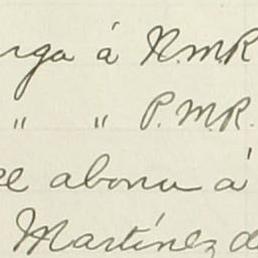 rga á R.M.R
" " P.M.R.
ee abona á
Martínez d